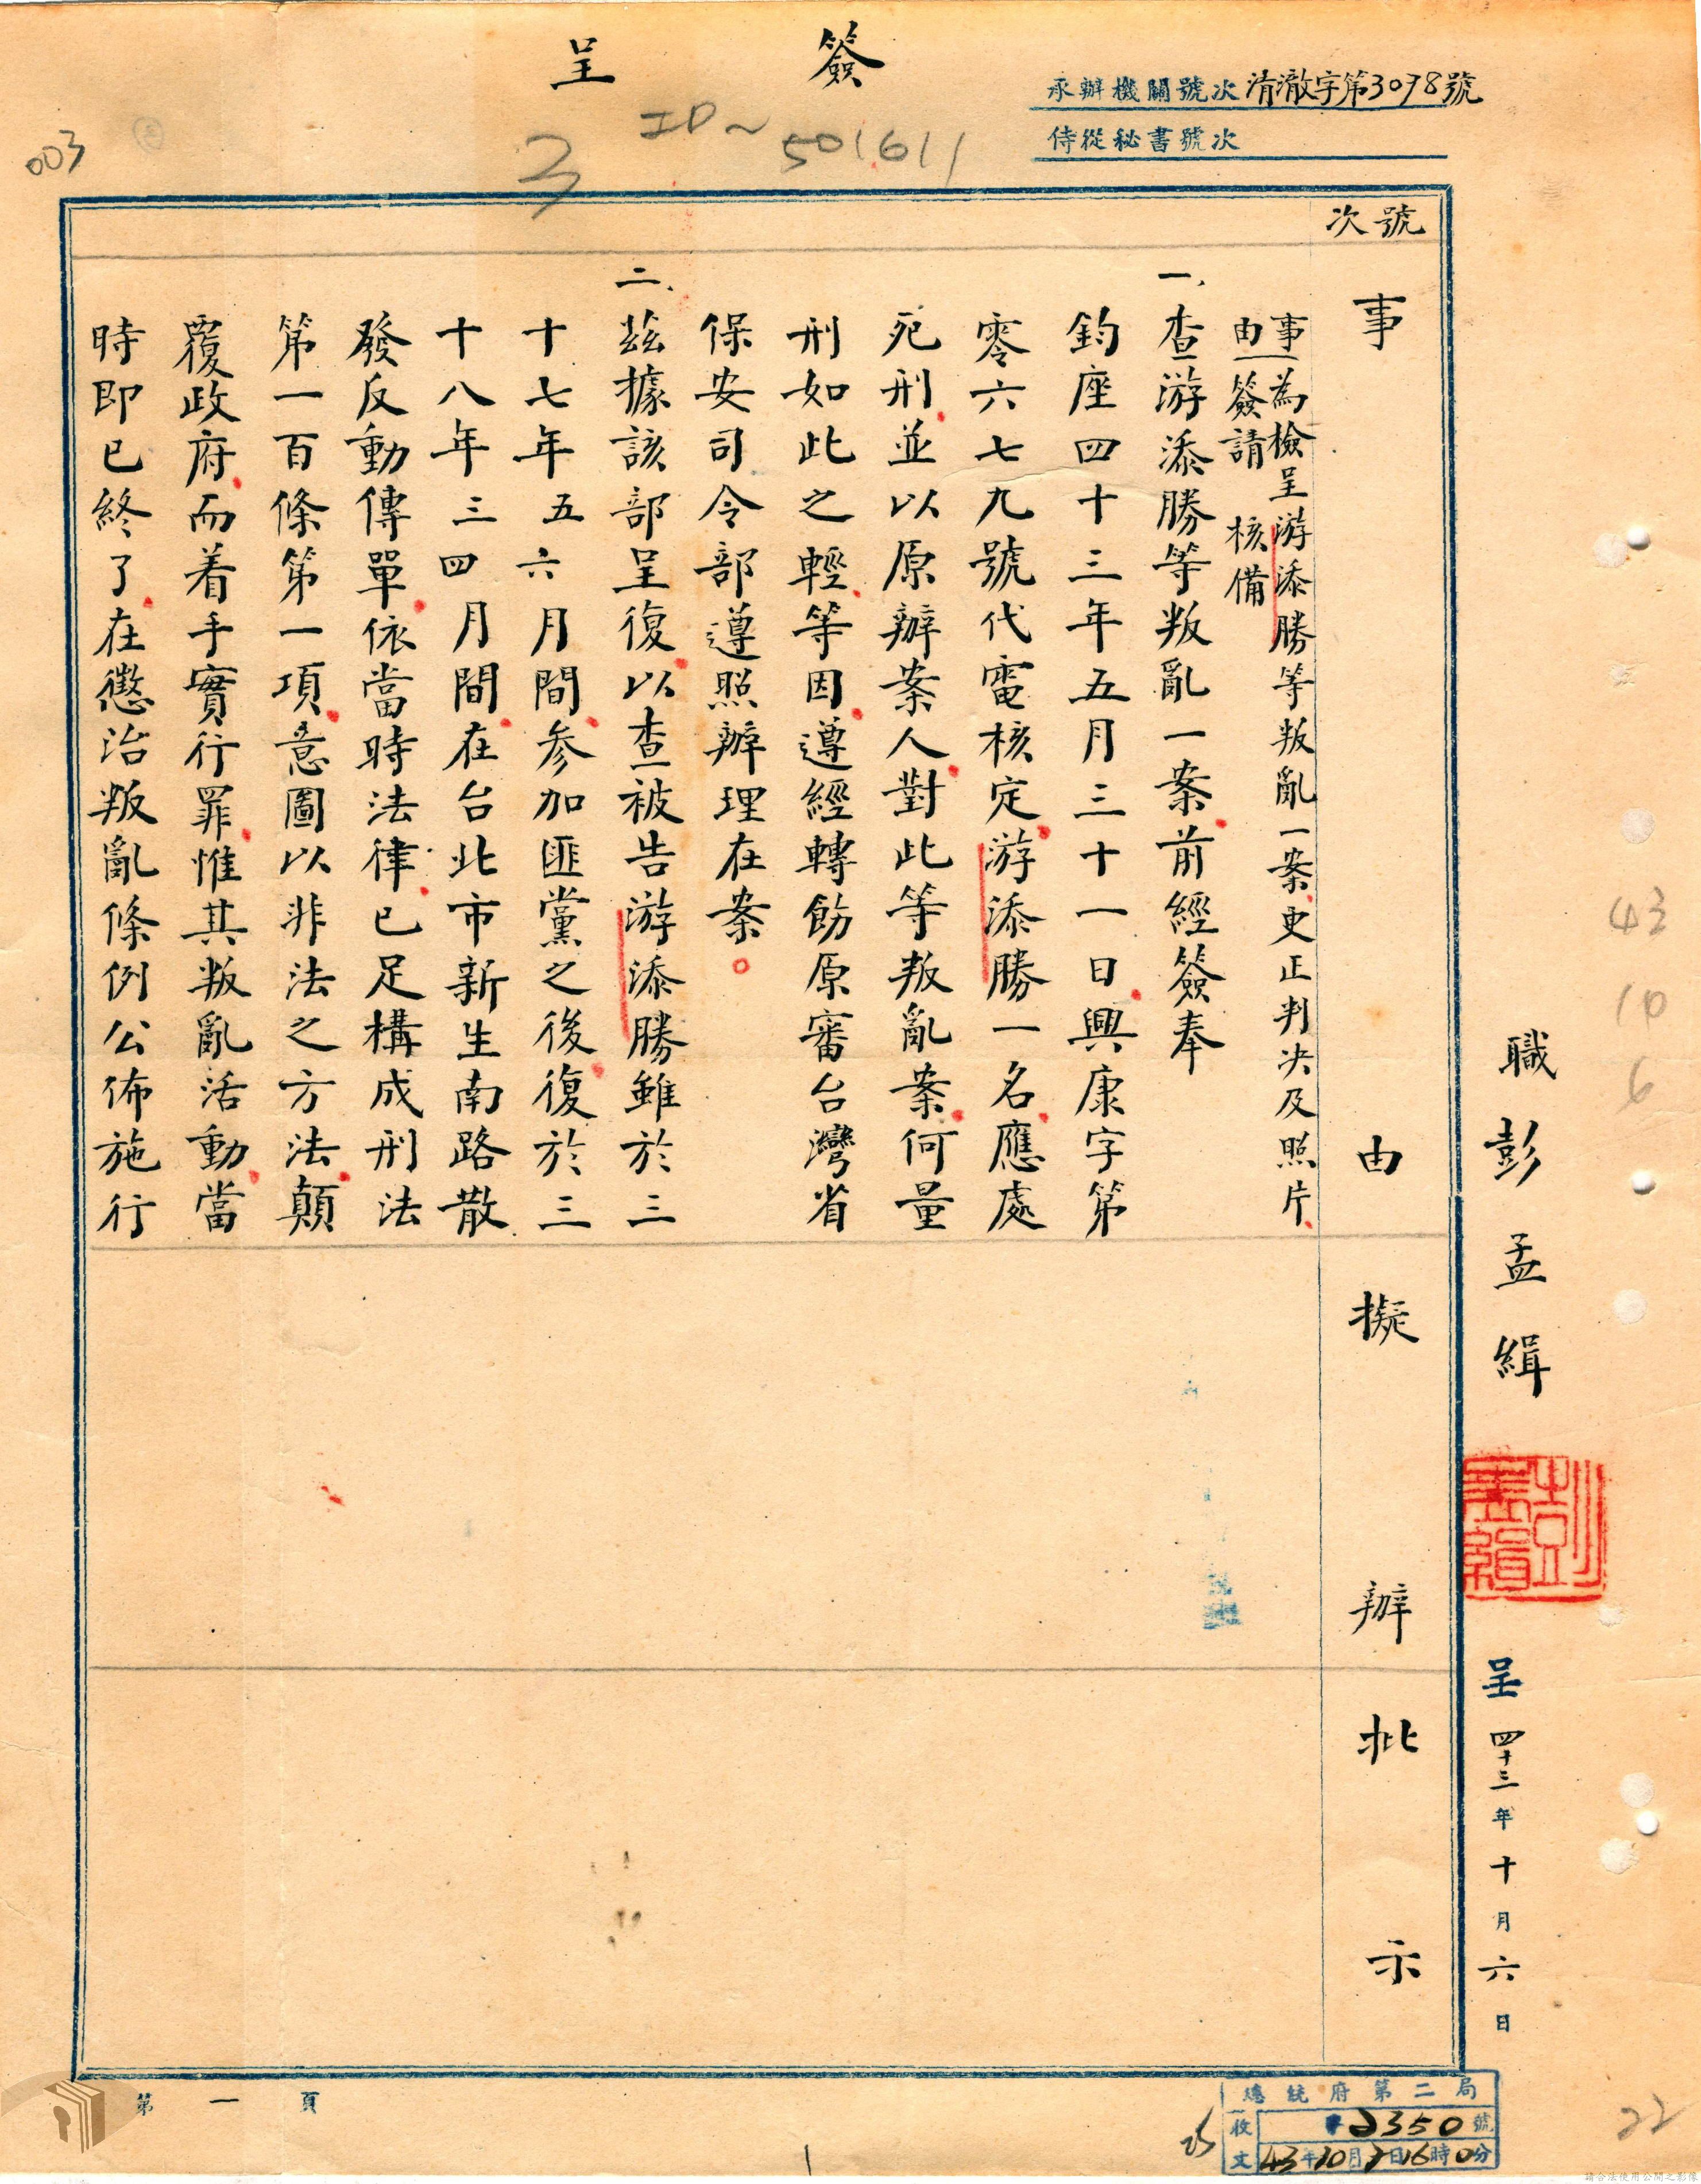 簽呈
承辦機關號次 清澈字第3078號
侍從秘書號次
003
3
ID~501611
號次
事由
擬辦
批示
事由—為檢呈游添勝等叛亂一案更正判决及照片
簽請 核備
一、查游添勝等叛亂一案前經簽奉
鈞座四十三年五月三十一日興康字第
零六七九號代電核定游添勝一名應處
死刑並以原辦案人對此等叛亂案何量
刑如此之輕等因遵經轉飭原審台灣省
保安司令部遵照辦理在案。
二、茲據該部呈復以查被告游添勝雖於三
十七年五六月間參加匪黨之後復於三
十八年三四月間在台北市新生南路散
發反動傳單依當時法律已足構成刑法
第一百條第一項意圖以非法之方法顛
覆政府而着手實行罪惟其叛亂活動當
時即已終了在懲治叛亂條例公佈施行
職彭孟緝
彭孟緝
呈 四十三年十月六日
43
10
6
22
第一頁
總統府第二局
收文 2350號
43年10月 日16時0分